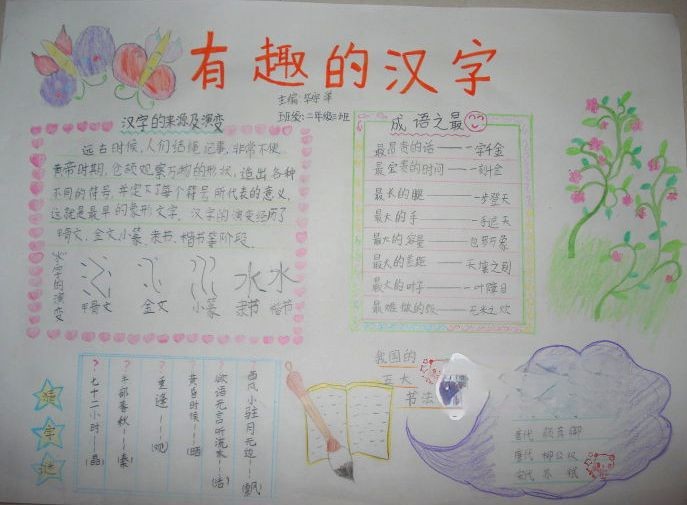 有趣的汉字
主编
班级:二年级三班
汉字的来源及演变
远古时候,人们结绳记事,非常不便。
黄帝时期,仓颉观察万物的形状,造出各种
不同的符号,并定下了每个符号所代表的意义,
这就是最早的象形文字。汉字的演变经历了
甲骨文、金文、小篆、隶书、楷书等阶段。
水字的演变
水 水
甲骨文 金文 小篆 隶书 楷书
成语之最
最昂贵的话——一字千金
最宝贵的时间——一刻千金
最长的腿——一步登天
最大的手——一手遮天
最大的容量——包罗万象
最大的差距——天壤之别
最大的叶子——一叶障目
最难做的饭——无米之炊
猜字谜
?七十二小时——(晶)
?半部春秋——(秦)
?重逢——(观)
?黄昏时候——(晒)
?欲语无言听流水——(活)
?西风小驻月无边——
我国的
五大
书法
唐代 颜真卿
唐代 柳公权
宋代 苏轼